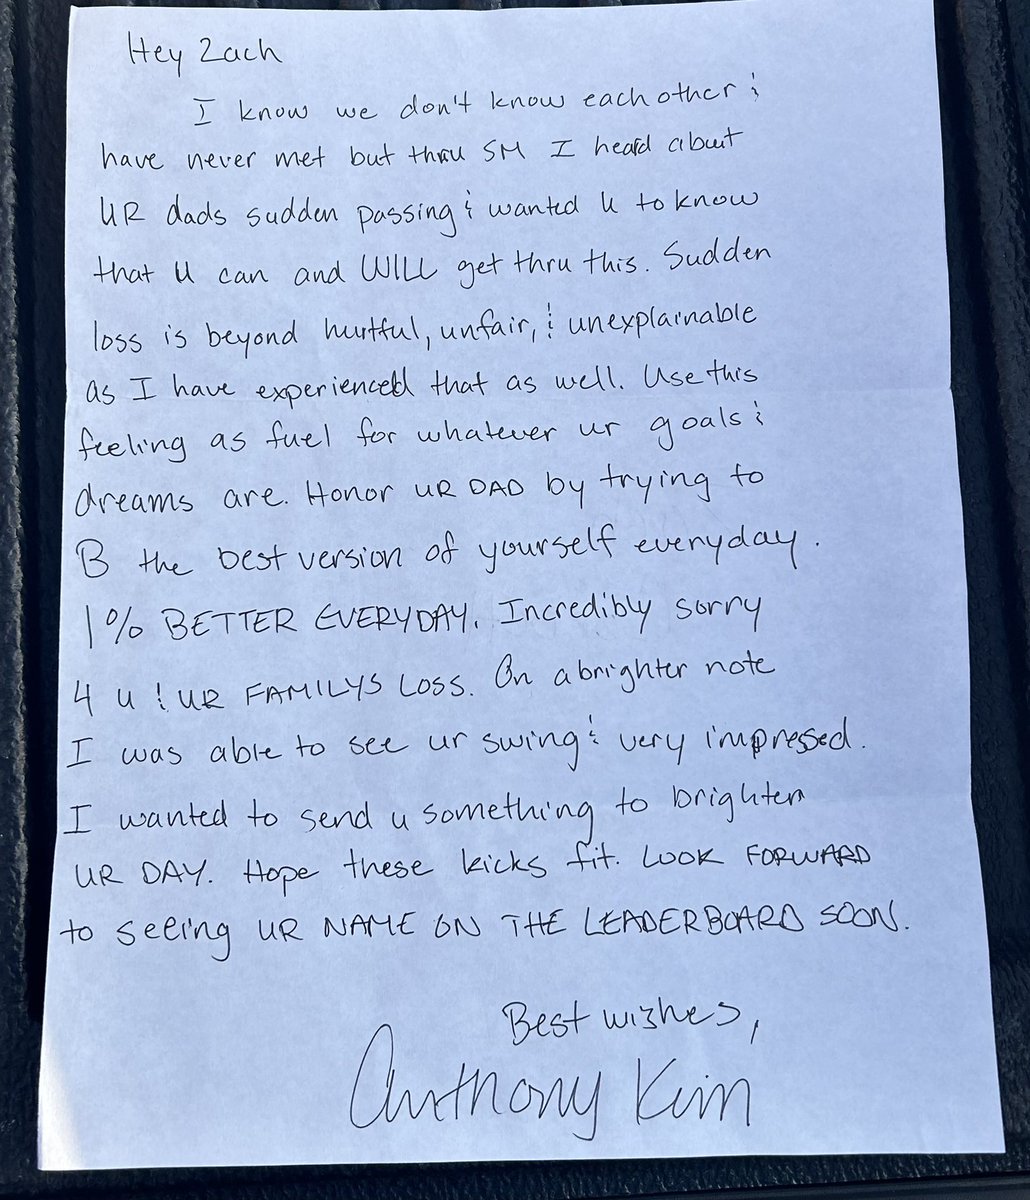 Hey Zach
I know we don't know each other &
have never met but thru SM I heard about
UR dads sudden passing & wanted u to know
that u can and WILL get thru this. Sudden
loss is beyond hurtful, unfair, & unexplainable
as I have experienced that as well. Use this
feeling as fuel for whatever ur goals &
dreams are. Honor UR DAD by trying to
B the best version of yourself everyday.
1% BETTER EVERYDAY. Incredibly sorry
4 u & UR FAMILYS LOSS. On a brighter note
I was able to see ur swing & very impressed.
I wanted to send u something to brighten
UR DAY. Hope these kicks fit. LOOK FORWARD
to seeing UR NAME ON THE LEADERBOARD SOON.
Best wishes,
Anthony Kim